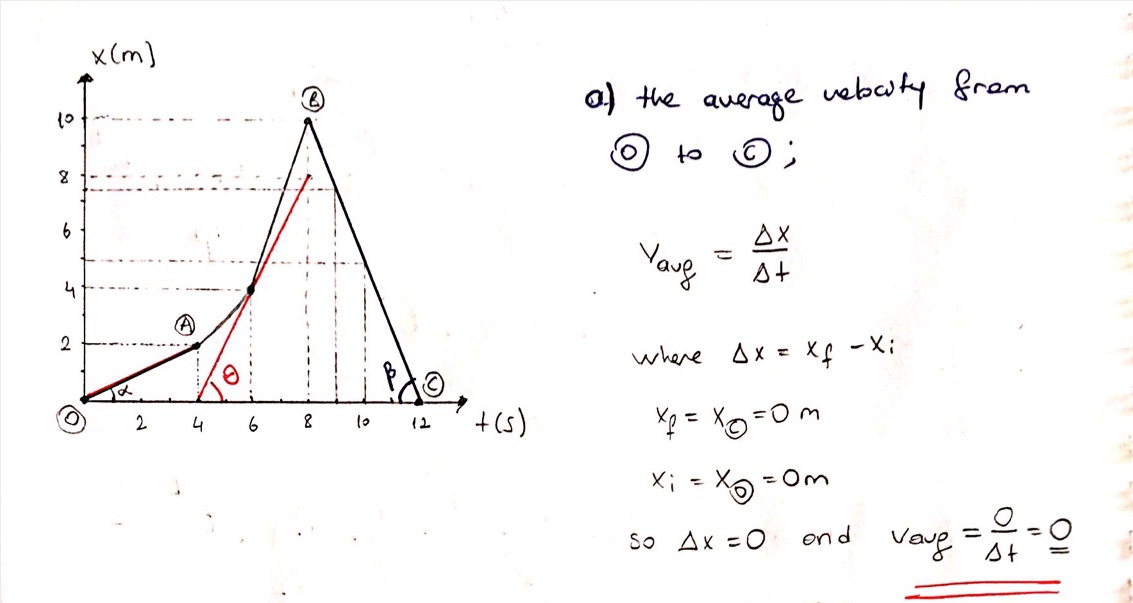 x(m)
Ⓑ
10
8
6
4
Ⓐ
2
θ
α
β
Ⓒ
Ⓞ
2 4 6 8 10 12 t(s)
a) the average velocity from
Ⓞ to Ⓒ;
Vavg = Δx/Δt
where Δx = xf - xi
xf = xⒸ = 0 m
xi = xⓄ = 0m
so Δx = 0 and Vavg = 0/Δt = 0